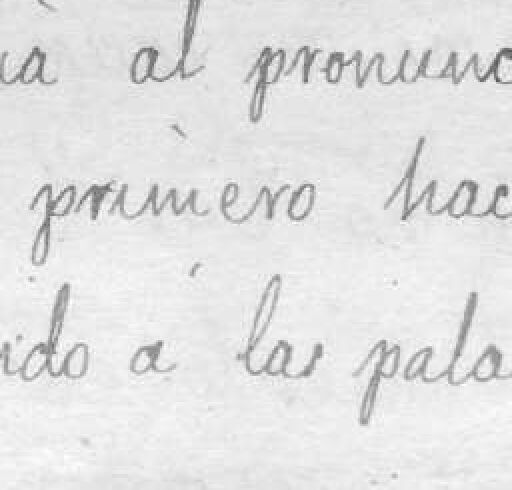 ia al pronunc
primero hac
ido á las pala